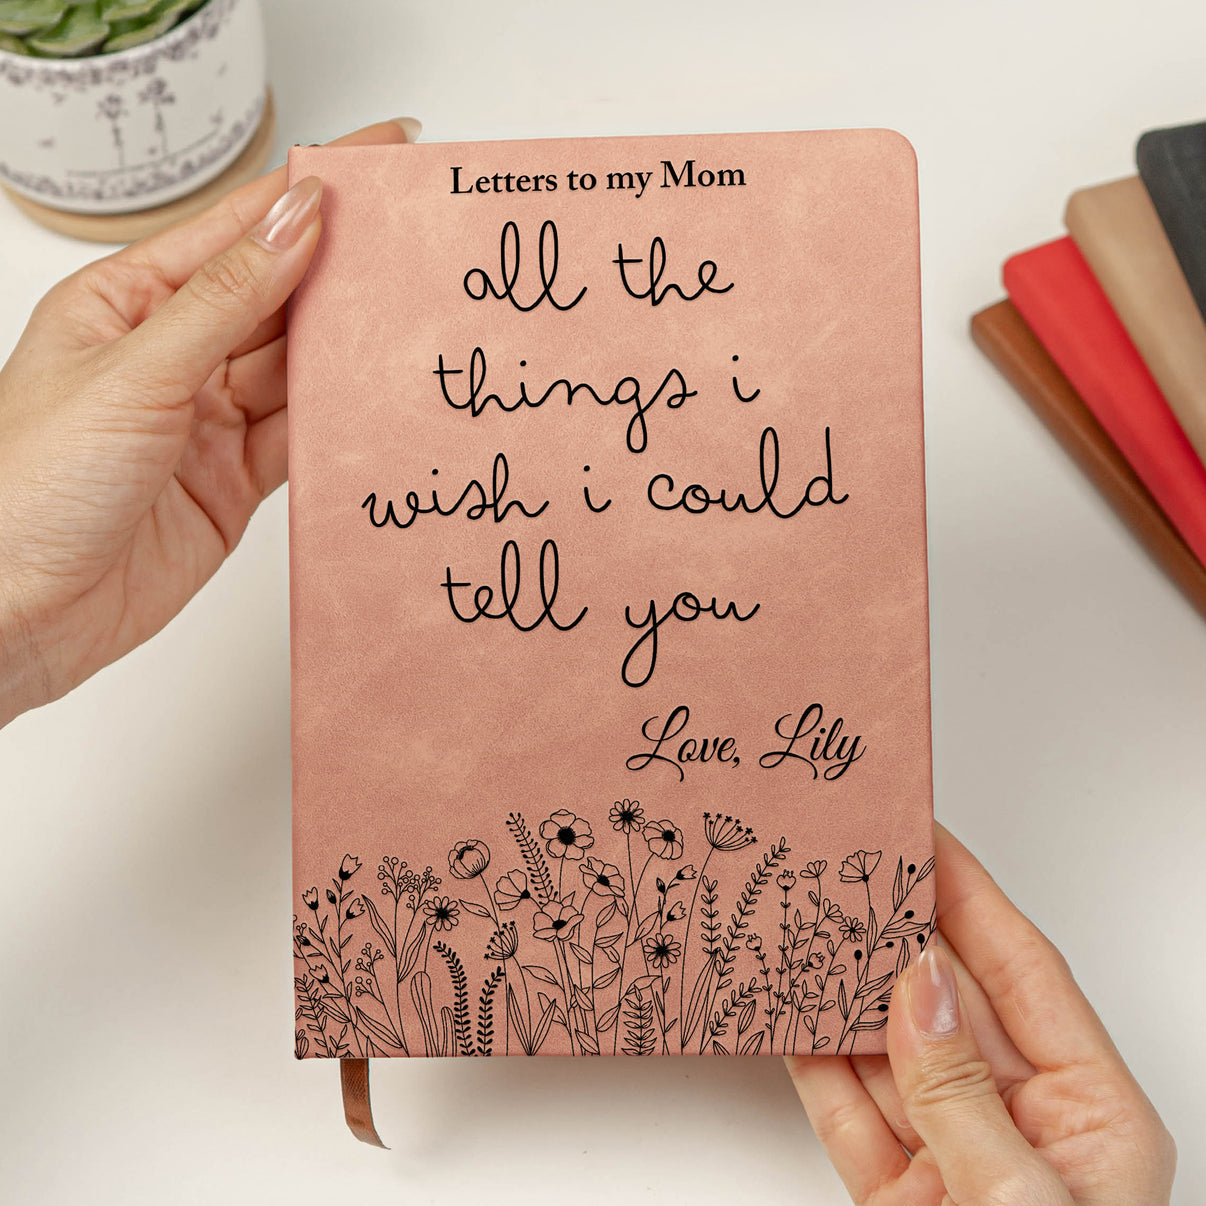 Letters to my Mom
all the
things i
wish i could
tell you
Love, Lily